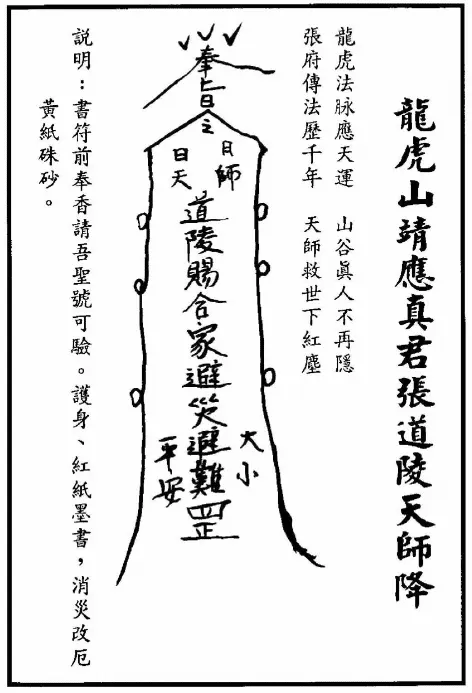 龍虎山靖應真君張道陵天師降
龍虎法脉應天運　山谷眞人不再隱
張府傳法歷千年　天師救世下紅塵
奉旨
之
日 月
天 師
道陵賜合家避災避難罡
大小
平安
説明：書符前奉香請吾聖號可驗。護身、紅紙墨書，消災改厄
黃紙硃砂。